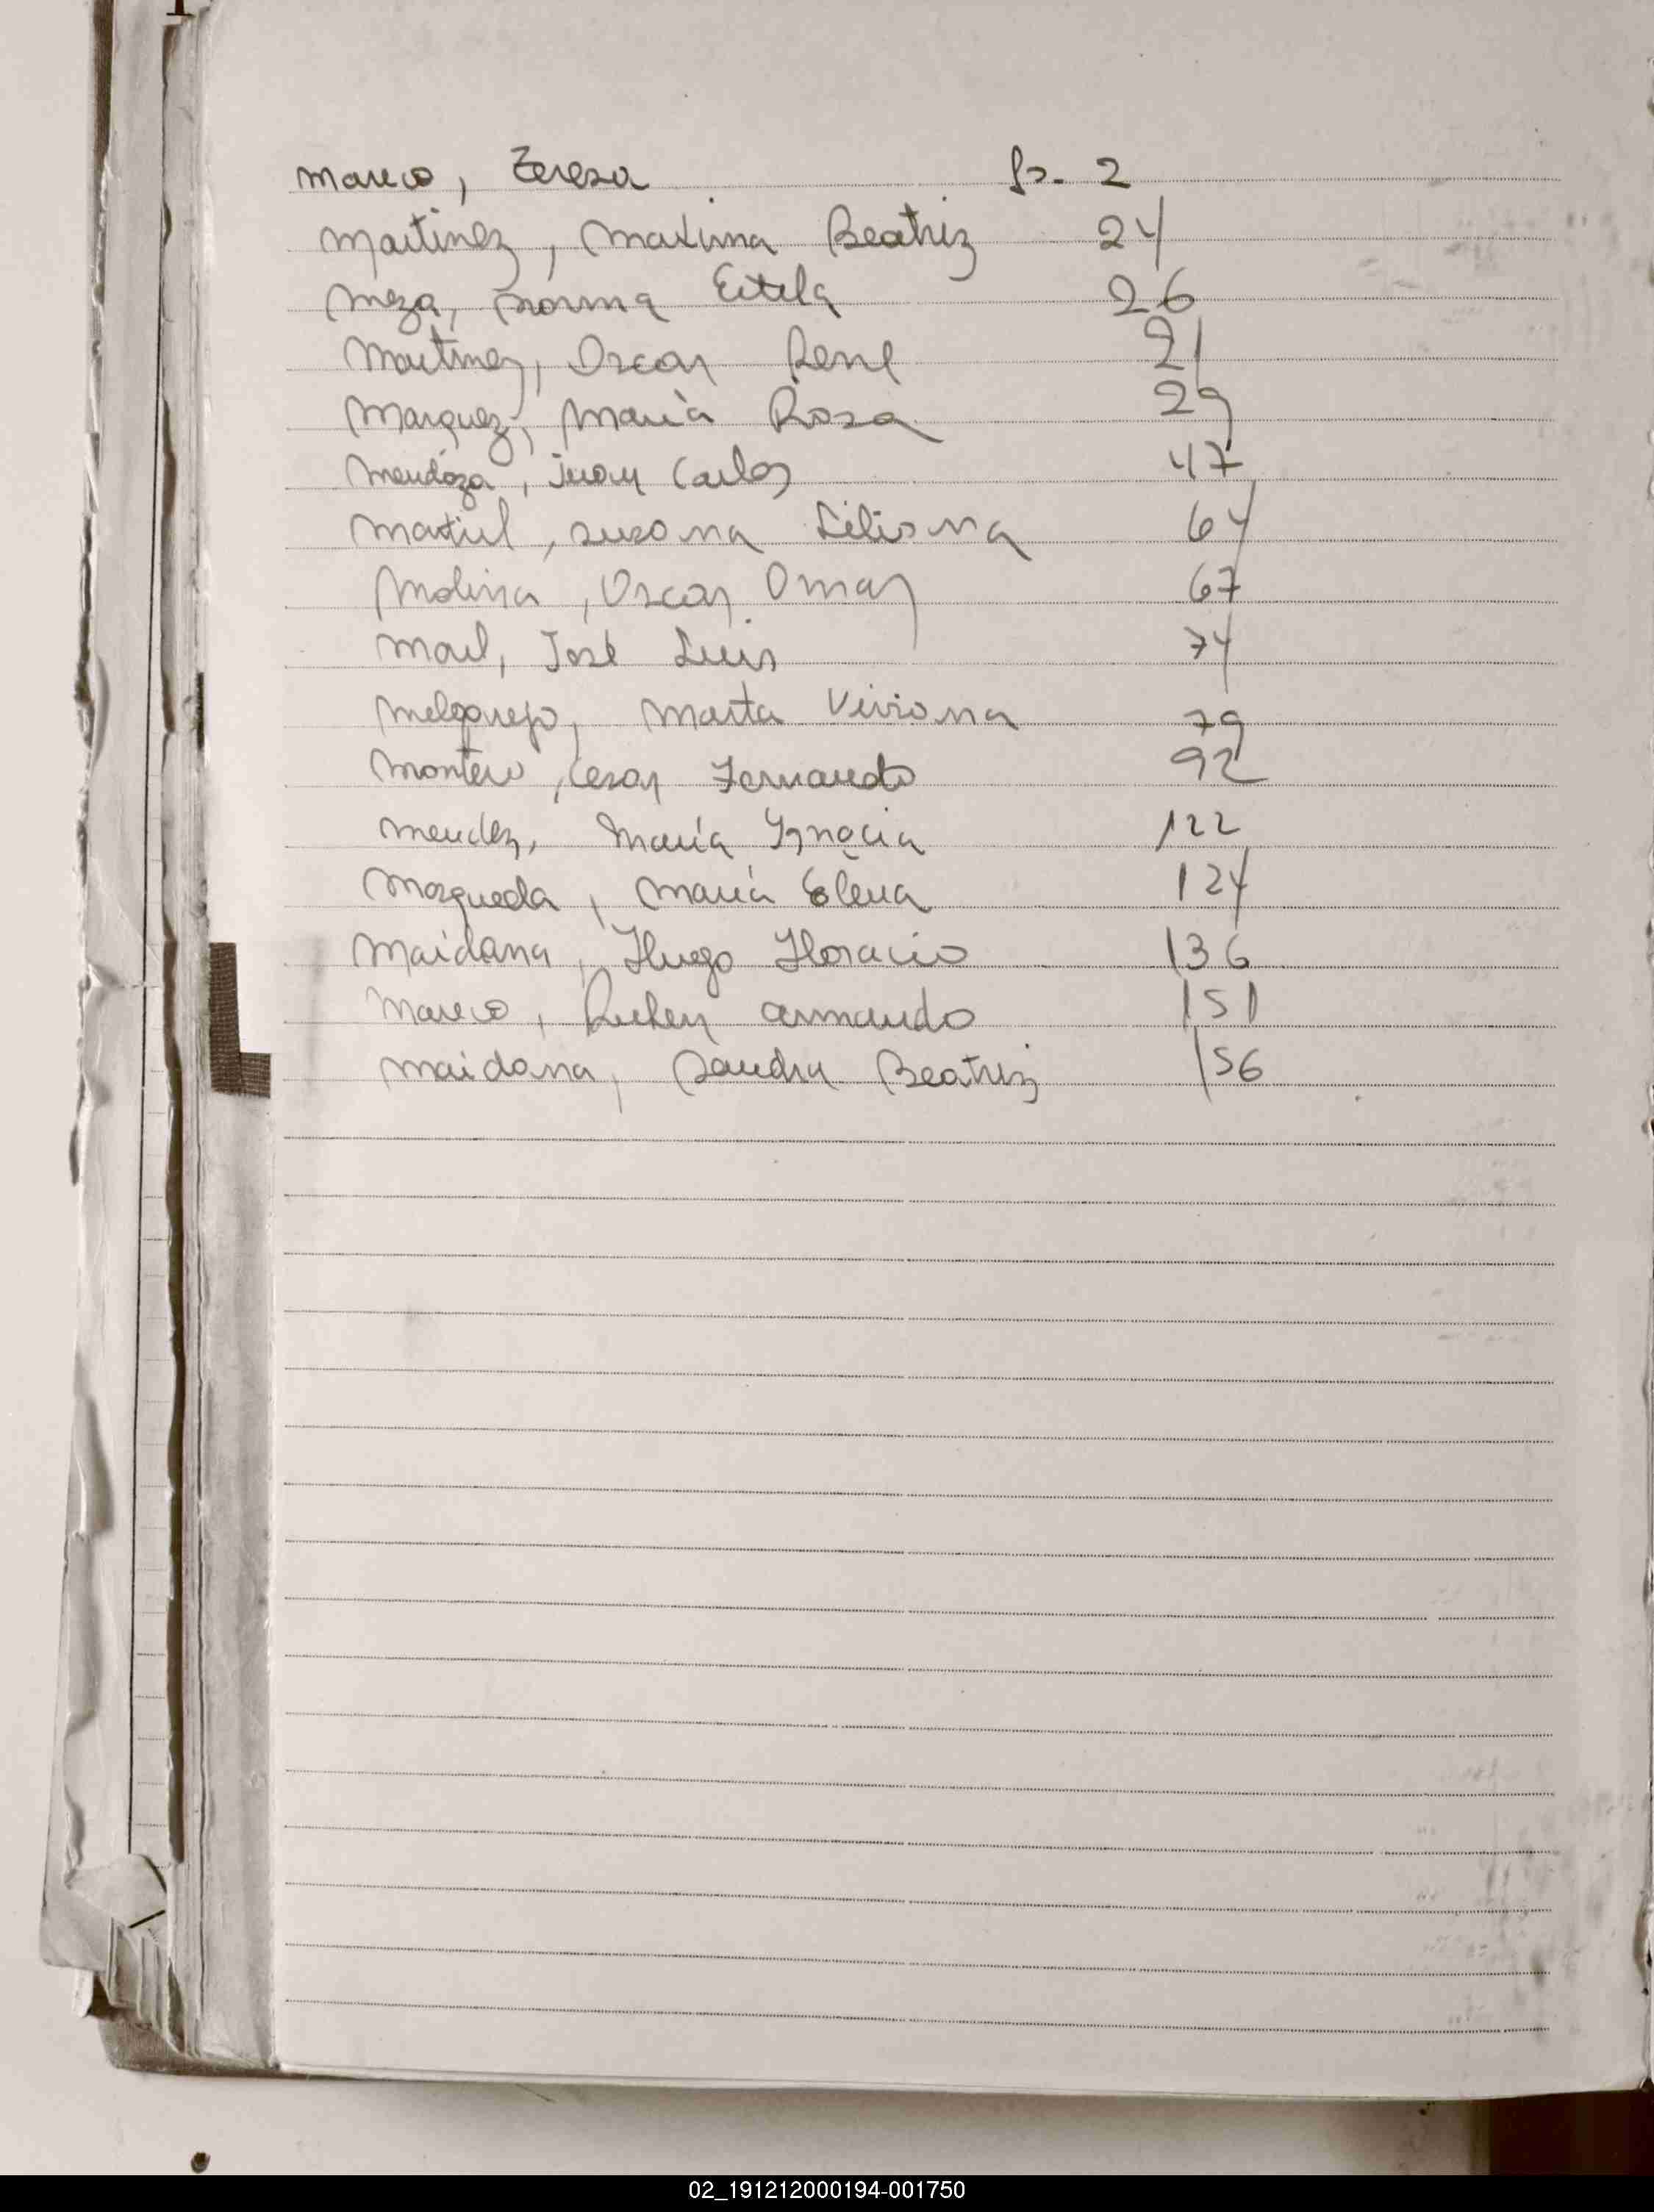 Mareco, Teresa fs. 2
Martinez, Maxima Beatriz 24
Meza, Norma Estela 26
Martinez, Oscar Rene 21
Marquez, María Rosa 29
Mendoza, Juan Carlos 47
Martiel, Susana Liliana 64
Molina, Oscar Omar 67
José Luis 74
Melgarejo, Marta Viviana 79
Montero, Cesar Fernando 92
Mendez, María Ygnacia 122
Mosqueda, María Elena 124
Maidana, Hugo Horacio 136
Mareco, Ruben Armando 151
Maidana, Sandra Beatriz 156
02_191212000194-001750